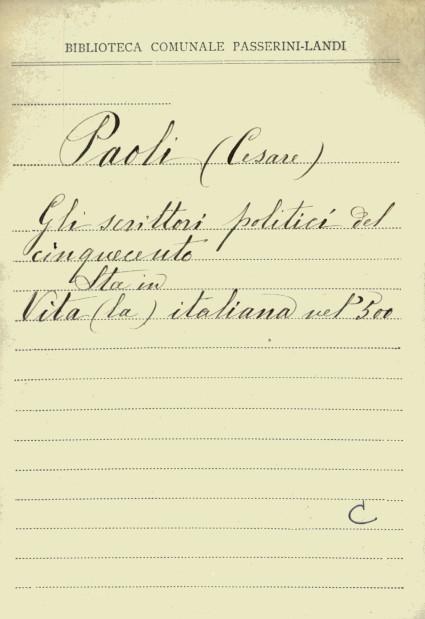 BIBLIOTECA COMUNALE PASSERINI-LANDI
Paoli (Cesare)
Gli scrittori politici del
cinquecento
Sta in
Vita (la) italiana nel '500
C